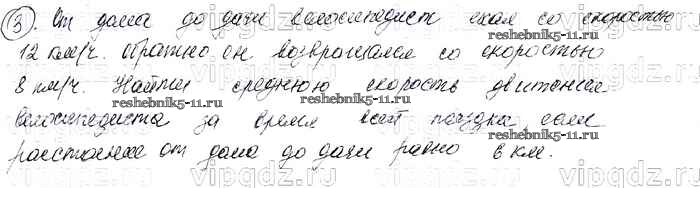 ③. От дома до дачи велосипедист ехал со скоростью
12 км/ч. обратно он возвращался со скоростью
8 км/ч. Найти среднюю скорость движения
велосипедиста за время всей поездки если
расстояние от дома до дачи равно 6 км.
reshebnik5-11.ru
reshebnik5-11.ru
reshebnik5-11.ru
vipgdz.ru vipgdz.ru vipgdz.ru
vipgdz.ru vipgdz.ru vipgdz.ru